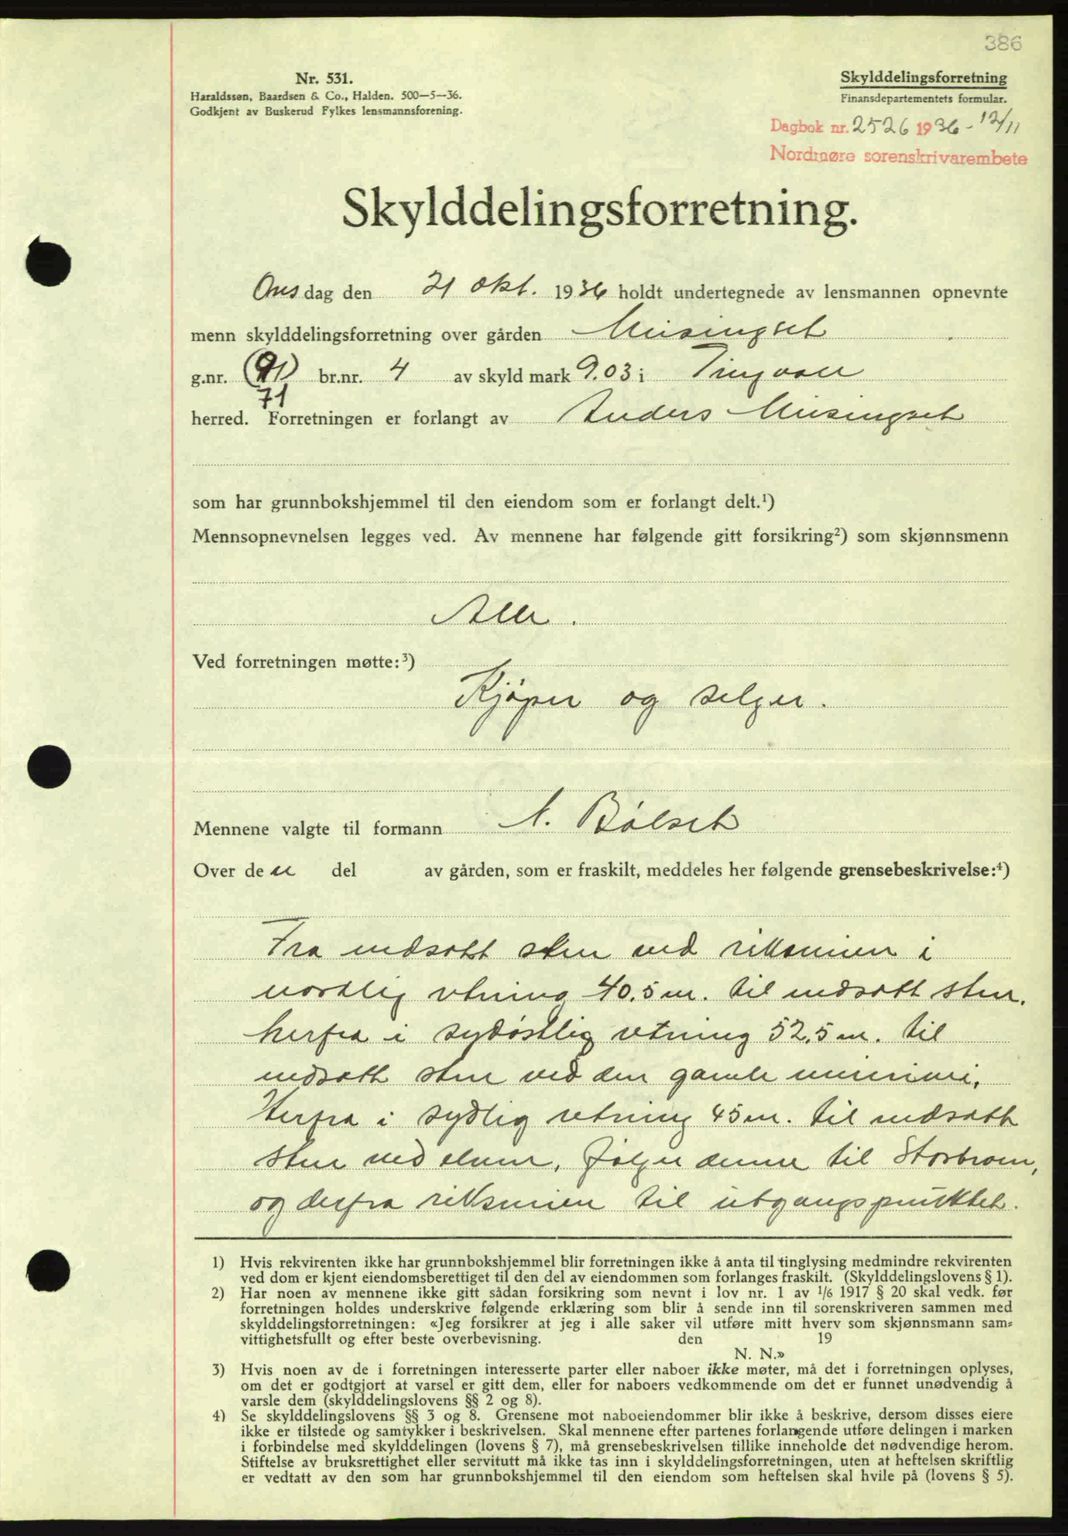 386
Nr. 531.
Haraldssøn, Baardsen & Co., Halden. 500—5—36.
Godkjent av Buskerud Fylkes lensmannsforening.
Skylddelingsforretning
Finansdepartementets formular.
Dagbok nr. 2526 1936 - 12/11
Nordmøre sorenskrivarembete
Skylddelingsforretning.
Onsdag den 21 okt. 1936 holdt undertegnede av lensmannen opnevnte
menn skylddelingsforretning over gården Meisingset
g.nr. (91) br.nr. 4 av skyld mark 9.03 i Tingvoll
71
herred. Forretningen er forlangt av Anders Meisingset
som har grunnbokshjemmel til den eiendom som er forlangt delt.¹)
Mennsopnevnelsen legges ved. Av mennene har følgende gitt forsikring²) som skjønnsmenn
Alle.
Ved forretningen møtte:³)
Kjøper og selger.
Mennene valgte til formann A. Bølset
Over den del av gården, som er fraskilt, meddeles her følgende grensebeskrivelse:⁴)
Fra nedsatt sten ved riksveien i
nordlig retning 40.5 m. til nedsatt sten.
herfra i sydøstlig retning 52,5 m. til
nedsatt sten ved den gamle
Herfra i sydlig retning 45 m. til nedsatt
sten ved elven, følger denne til Storbroen,
og derfra riksveien til utgangspunktet.
1) Hvis rekvirenten ikke har grunnbokshjemmel blir forretningen ikke å anta til tinglysing medmindre rekvirenten
ved dom er kjent eiendomsberettiget til den del av eiendommen som forlanges fraskilt. (Skylddelingslovens § 1).
2) Har noen av mennene ikke gitt sådan forsikring som nevnt i lov nr. 1 av 1/6 1917 § 20 skal vedk. før
forretningen holdes underskrive følgende erklæring som blir å sende inn til sorenskriveren sammen med
skylddelingsforretningen: «Jeg forsikrer at jeg i alle saker vil utføre mitt hverv som skjønnsmann sam-
vittighetsfullt og efter beste overbevisning. den 19
N. N.»
3) Hvis noen av de i forretningen interesserte parter eller naboer ikke møter, må det i forretningen oplyses,
om det er godtgjort at varsel er gitt dem, eller for naboers vedkommende om det er funnet unødvendig å
varsle dem (skylddelingslovens §§ 2 og 8).
4) Se skylddelingslovens §§ 3 og 8. Grensene mot naboeiendommer blir ikke å beskrive, dersom disses eiere
ikke er tilstede og samtykker i beskrivelsen. Skal mennene efter partenes forlangende utføre delingen i marken
i forbindelse med skylddelingen (lovens § 7), må grensebeskrivelsen tillike inneholde det nødvendige herom.
Stiftelse av bruksrettighet eller servitutt må ikke tas inn i skylddelingsforretningen, uten at heftelsen skriftlig
er vedtatt av den som har grunnbokshjemmel til den eiendom som heftelsen skal hvile på (lovens § 5).